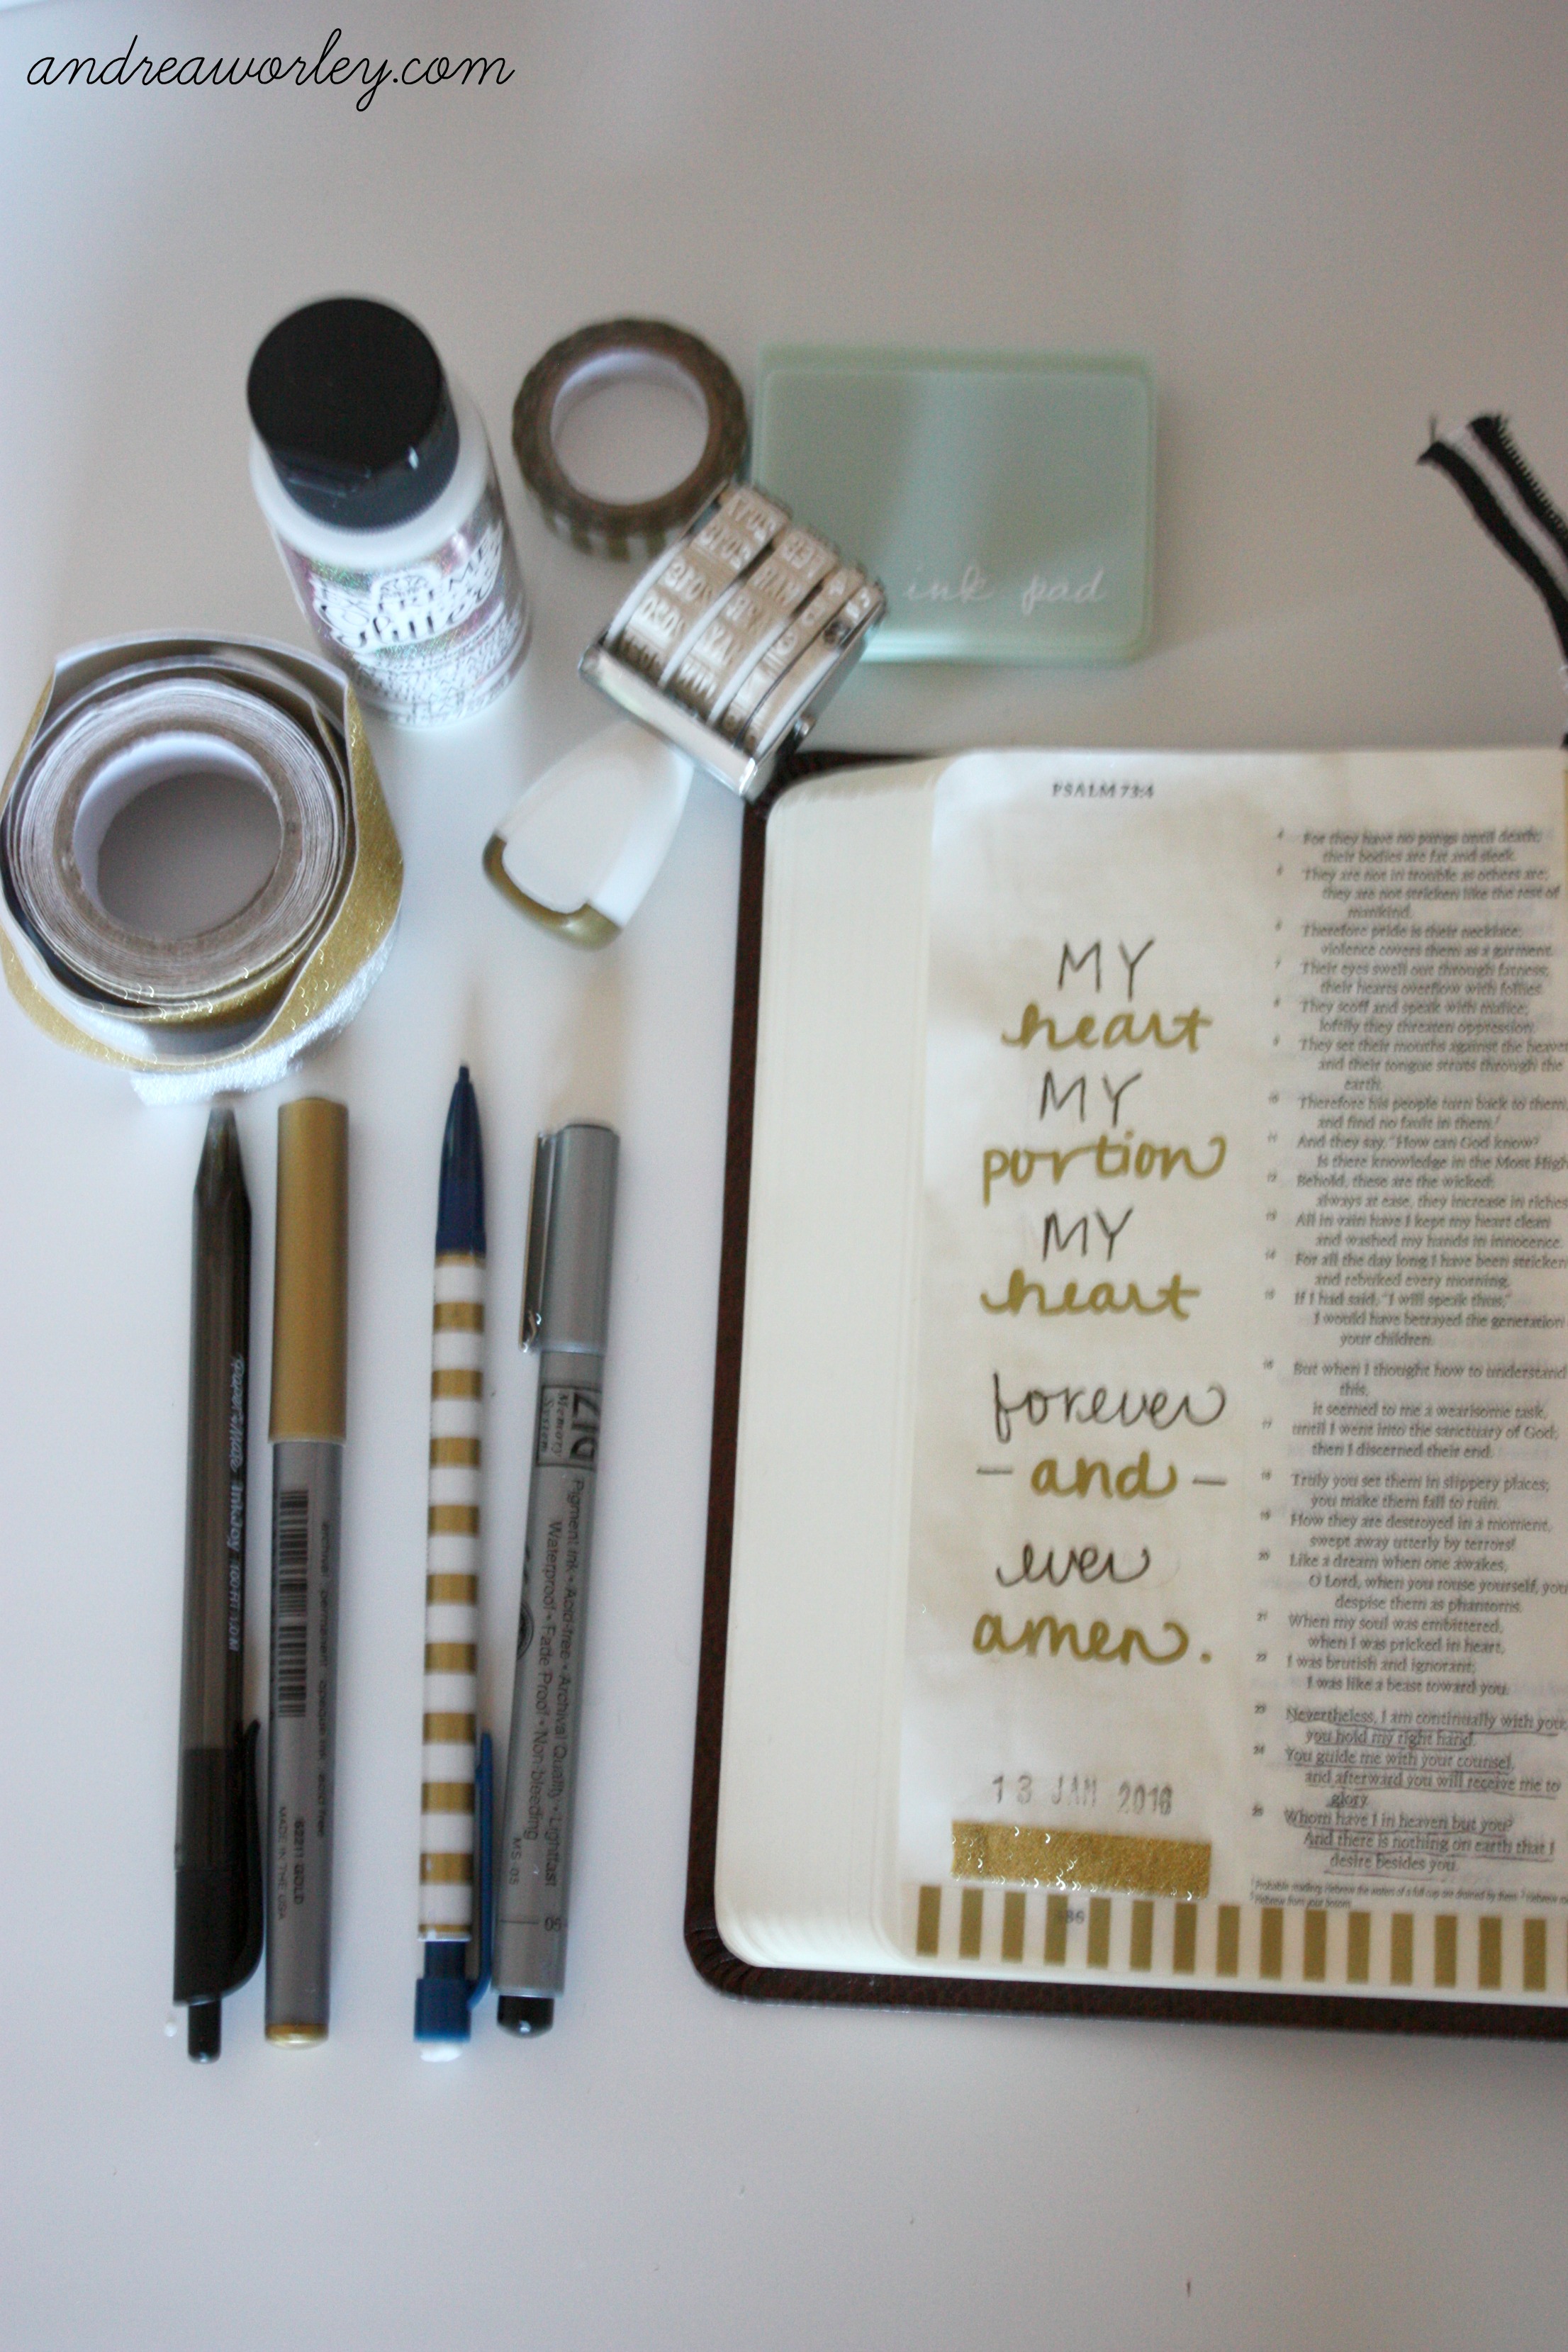 andreaworley.com
EXTREME
Glitter
ink pad
PSALM 73:4
MY
heart
MY
portion
MY
heart
forever
- and -
ever
amen.
13 JAN 2016
4 For they have no pangs until death;
their bodies are fat and sleek.
5 They are not in trouble as others are;
they are not stricken like the rest of
mankind.
6 Therefore pride is their necklace;
violence covers them as a garment.
7 Their eyes swell out through fatness;
their hearts overflow with follies.
8 They scoff and speak with malice;
loftily they threaten oppression.
9 They set their mouths against the heavens
and their tongue struts through the
earth.
10 Therefore his people turn back to them,
and find no fault in them.
11 And they say, "How can God know?
Is there knowledge in the Most High
12 Behold, these are the wicked;
always at ease, they increase in riches
13 All in vain have I kept my heart clean
and washed my hands in innocence.
14 For all the day long I have been stricken
and rebuked every morning.
15 If I had said, "I will speak thus,"
I would have betrayed the generation
your children.
16 But when I thought how to understand
this,
it seemed to me a wearisome task,
17 until I went into the sanctuary of God;
then I discerned their end.
18 Truly you set them in slippery places;
you make them fall to ruin.
19 How they are destroyed in a moment,
swept away utterly by terrors!
20 Like a dream when one awakes,
O Lord, when you rouse yourself, you
despise them as phantoms.
21 When my soul was embittered,
when I was pricked in heart,
22 I was brutish and ignorant;
I was like a beast toward you.
23 Nevertheless, I am continually with you;
you hold my right hand.
24 You guide me with your counsel,
and afterward you will receive me to
glory.
25 Whom have I in heaven but you?
And there is nothing on earth that I
desire besides you.
486
PaperMate InkJoy 100 RT 1.0 M
permanent opaque ink acid free
62211 GOLD
MADE IN THE USA
ZIG
Memory
System
Pigment Ink • Acid-free • Archival Quality • Lightfast
Waterproof • Fade Proof • Non-bleeding
MS 05
05